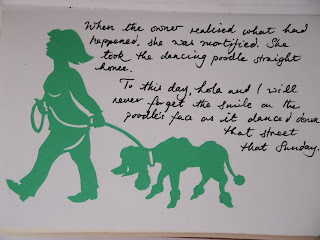 When the owner realised what had
happened, she was mortified. She
took the dancing poodle straight
home.
To this day, Lola and I will
never forget the smile on the
poodle's face as it danced down
that street
that Sunday.